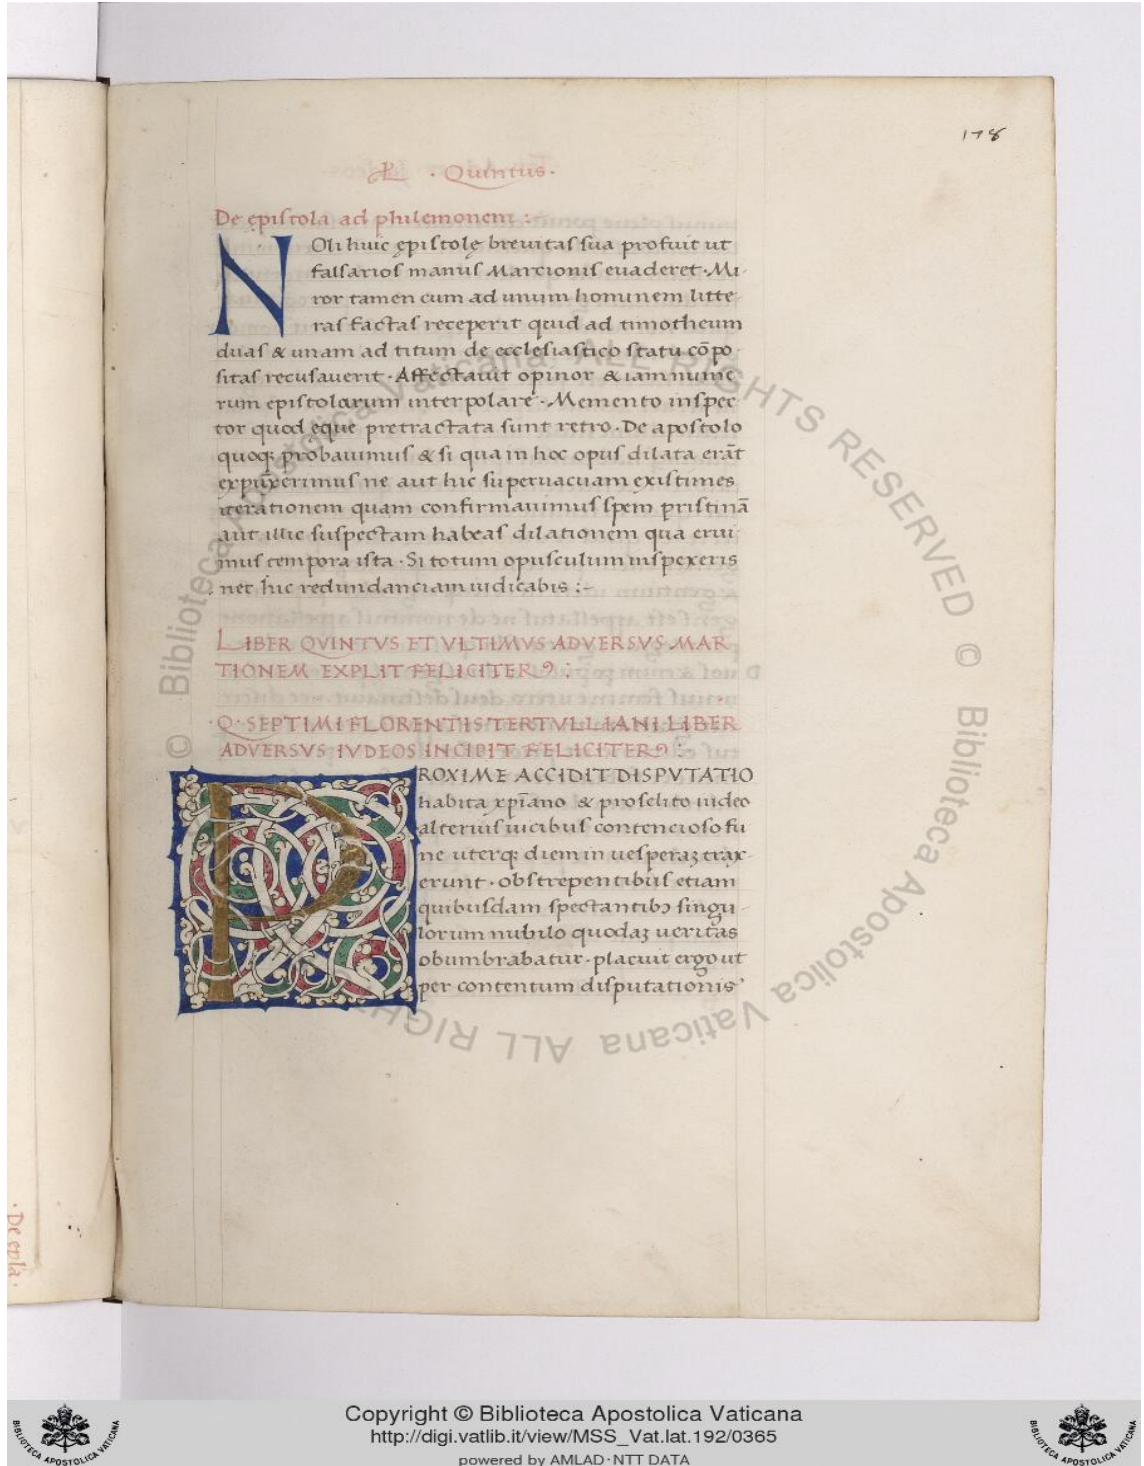 178
· Quintus ·
De ępistola ad philemonem :
NOli huic ępistolę breuitas sua profuit ut
falsarios manus Marcionis euaderet · Mi
ror tamen cum ad unum hominem litte
ras factas receperit quid ad timotheum
duas & unam ad titum de ecclesiastico statu cōpo
sitas recusauerit · Affectauit opinor & iam nume
rum epistolarum interpolare · Memento inspec
tor quod eque pretractata sunt retro · De apostolo
quoq; probauimus & si qua in hoc opus dilata erāt
expunxerimus ne aut hic superuacuam existimes
iterationem quam confirmauimus spem pristinā
aut illic suspectam habeas dilationem qua erui
mus tempora ista · Si totum opusculum inspexeris
nec hic redundanciam iudicabis :-
LIBER QVINTVS ET VLTIMVS ADVERSVS MAR
TIONEM EXPLIT FELICITER :
· Q · SEPTIMI FLORENTIS TERTVLLIANI LIBER
ADVERSVS IVDEOS INCIPIT FELICITER :
PROXIME ACCIDIT DISPVTATIO
habita xp̄iano & proselito iudeo
alternis uicibus contencioso fu
ne uterq; diem in uesperaꝫ trax
erunt · obstrepentibus etiam
quibusdam spectantibꝫ singu
lorum nubilo quodaꝫ ueritas
obumbrabatur · placuit ergo ut
per contentum disputationis
· De ep̄la ·
© Biblioteca Apostolica Vaticana ALL RIGHTS RESERVED © Biblioteca Apostolica Vaticana ALL RIGHT
Copyright © Biblioteca Apostolica Vaticana
http://digi.vatlib.it/view/MSS_Vat.lat.192/0365
powered by AMLAD·NTT DATA
BIBLIOTECA APOSTOLICA VATICANA
BIBLIOTECA APOSTOLICA VATICANA